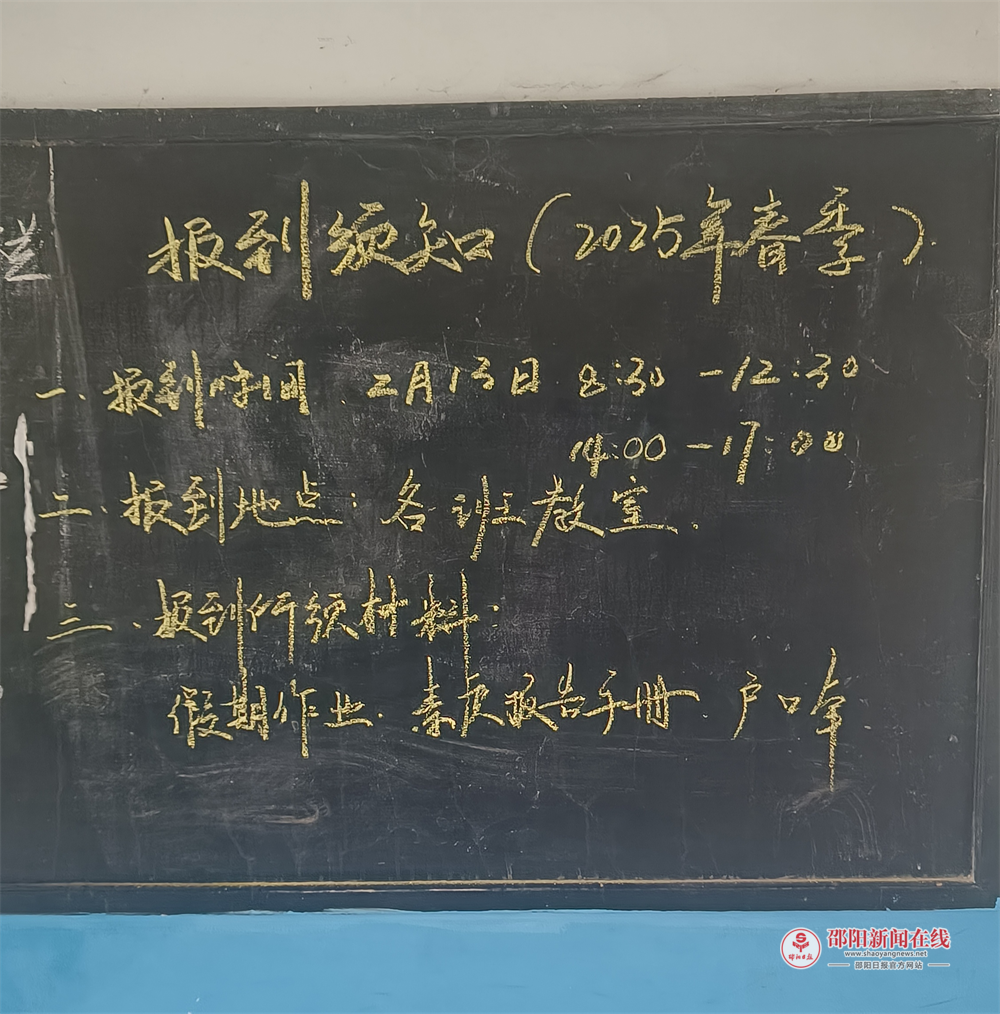 报到须知（2025年春季）.
一、报到时间 二月13日 8:30 －12:30
14:00 －17:00
二、报到地点：各班教室.
三、报到所须材料：
假期作业. 素质报告手册 户口本
邵阳新闻在线
www.shaoyangnews.net
邵阳日报官方网站
邵阳日报